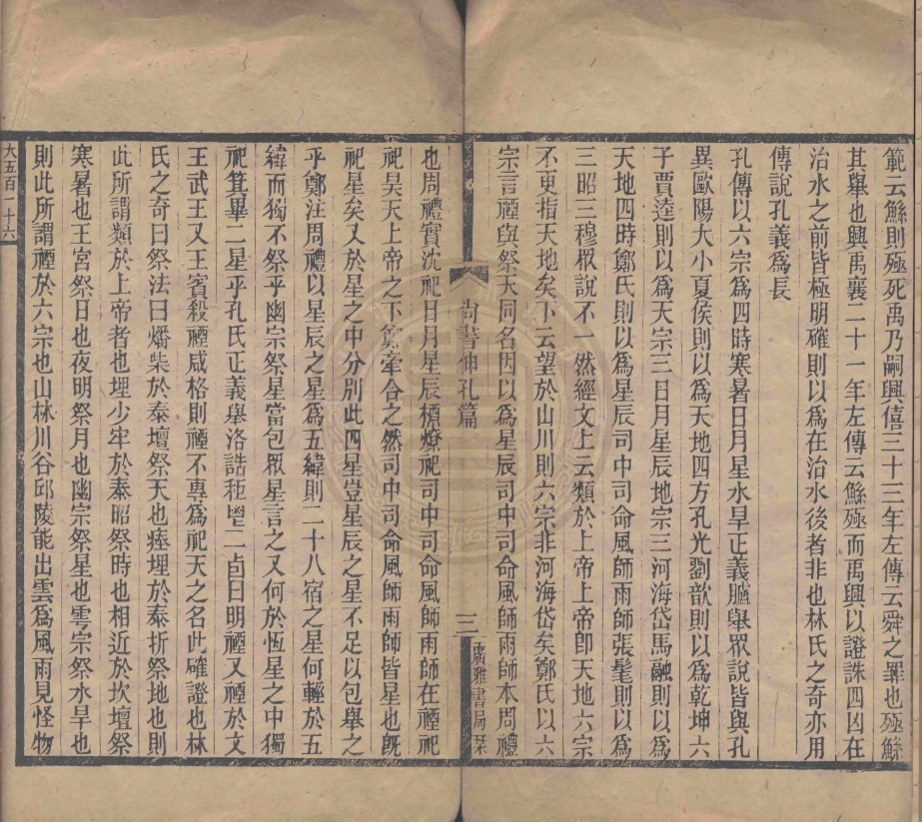 範云鯀則殛死禹乃嗣興僖三十三年左傳云舜之罪也殛鯀
其舉也興禹襄二十一年左傳云鯀殛而禹興以證誅四凶在
治水之前皆極明確則以為在治水後者非也林氏之奇亦用
傳說孔義為長
孔傳以六宗為四時寒暑日月星水旱正義臚舉眾說皆與孔
異歐陽大小夏侯則以為天地四方孔光劉歆則以為乾坤六
子賈逵則以為天宗三日月星辰地宗三河海岱馬融則以為
天地四時鄭氏則以為星辰司中司命風師雨師張髦則以為
三昭三穆眾說不一然經文上云類於上帝上帝卽天地六宗
不更指天地矣下云望於山川則六宗非河海岱矣鄭氏以六
宗言禋與祭天同名因以為星辰司中司命風師雨師本周禮
尙書伸孔篇
三
廣雅書局栞
也周禮實沈祀日月星辰槱燎祀司中司命風師雨師在禋祀
祀昊天上帝之下實牽合之然司中司命風師雨師皆星也旣
祀星矣又於星之中分別此四星豈星辰之星不足以包舉之
乎鄭注周禮以星辰之星為五緯則二十八宿之星何輕於五
緯而獨不祭乎幽宗祭星當包眾星言之又何於恆星之中獨
祀箕畢二星乎孔氏正義舉洛誥秬鬯二卣曰明禋又禋於文
王武王又王賓殺禋咸格則禋不專為祀天之名此確證也林
氏之奇曰祭法曰燔柴於泰壇祭天也瘞埋於泰折祭地也則
此所謂類於上帝者也埋少牢於泰昭祭時也相近於坎壇祭
寒暑也王宮祭日也夜明祭月也幽宗祭星也雩宗祭水旱也
則此所謂禋於六宗也山林川谷邱陵能出雲為風雨見怪物
大五百一十六